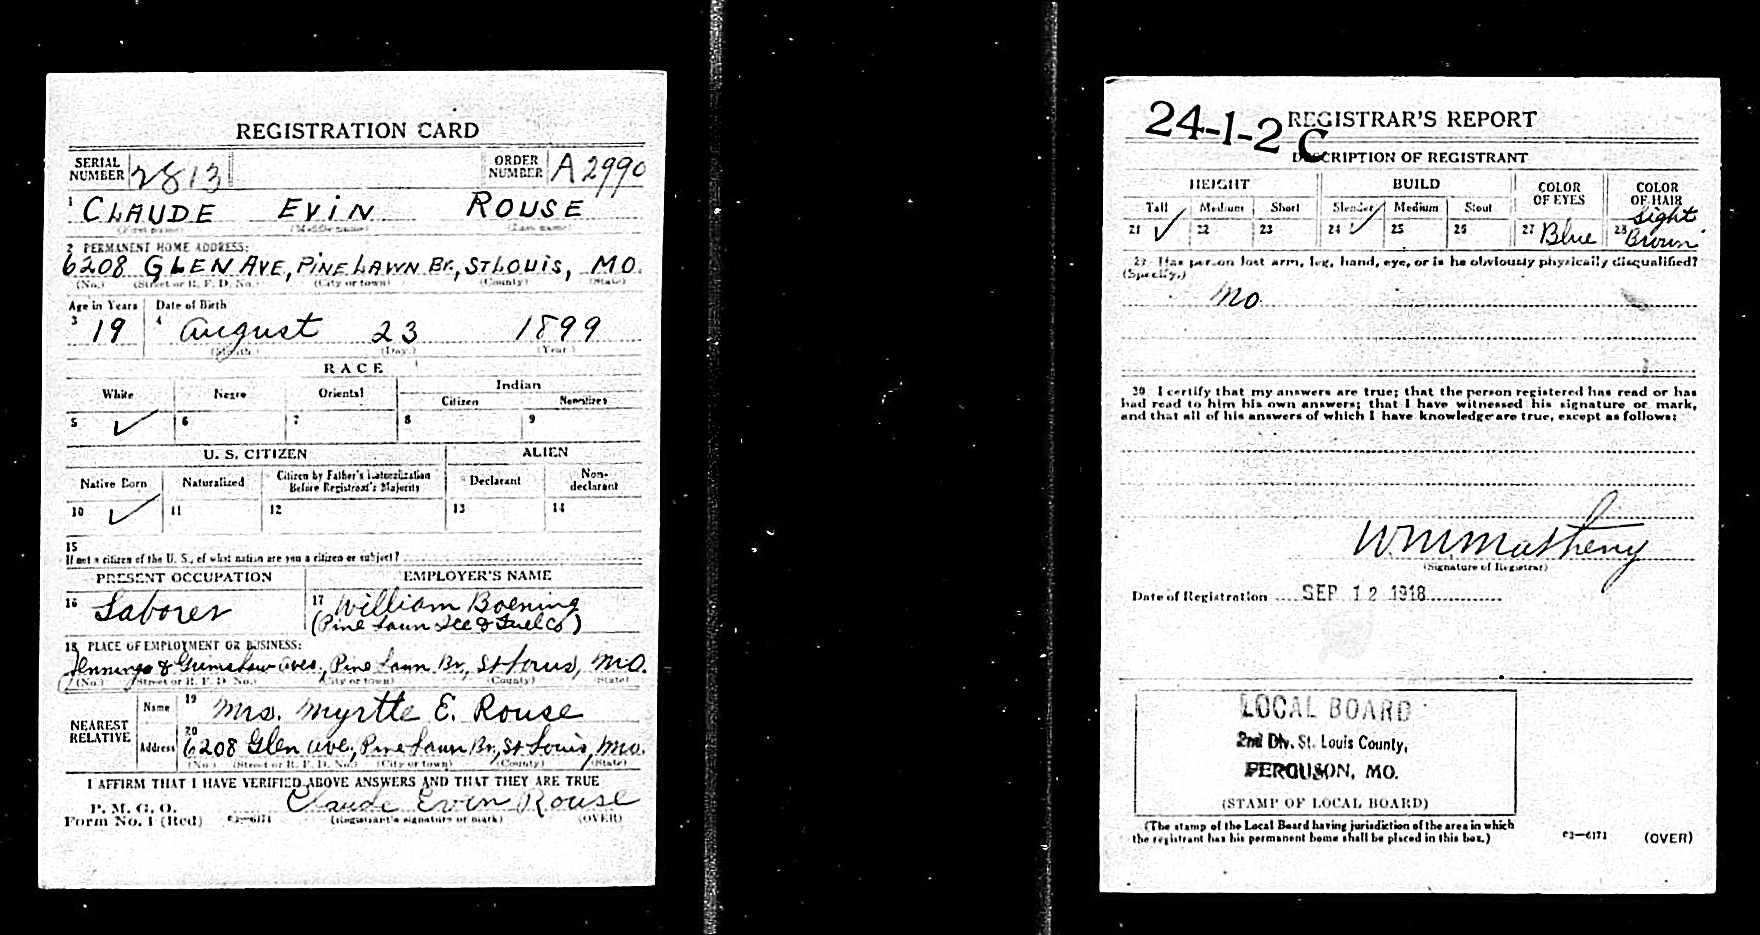 REGISTRATION CARD
SERIAL NUMBER 2813 ORDER NUMBER A2990
1 CLAUDE EVIN ROUSE
(First name) (Middle name) (Last name)
2 PERMANENT HOME ADDRESS:
6208 GLEN AVE, PINE LAWN Br., ST LOUIS, MO.
(No.) (Street or R. F. D. No.) (City or town) (County) (State)
Age in Years Date of Birth
3 19 4 August 23 1899
(Month.) (Day.) (Year.)
RACE
White Negro Oriental Indian
Citizen Noncitizen
5 ✓ 6 7 8 9
U. S. CITIZEN ALIEN
Native Born Naturalized Citizen by Father's Naturalization Before Registrant's Majority Declarant Non-declarant
10 ✓ 11 12 13 14
15
If not a citizen of the U. S., of what nation are you a citizen or subject?
PRESENT OCCUPATION EMPLOYER'S NAME
16 Laborer 17 William Boening
(Pine Lawn Ice & Fuel Co)
18 PLACE OF EMPLOYMENT OR BUSINESS:
Jennings & Grimshaw aves., Pine Lawn Br., St Louis, Mo.
(No.) (Street or R. F. D. No.) (City or town) (County) (State)
NEAREST RELATIVE
Name 19 Mrs. Myrtle E. Rouse
Address 20 6208 Glen ave., Pine Lawn Br., St Louis, Mo.
(No.) (Street or R. F. D. No.) (City or town) (County) (State)
I AFFIRM THAT I HAVE VERIFIED ABOVE ANSWERS AND THAT THEY ARE TRUE
P. M. G. O.
Form No. 1 (Red) Claude Evin Rouse
(Registrant's signature or mark) (OVER)
24-1-2 C
REGISTRAR'S REPORT
DESCRIPTION OF REGISTRANT
HEIGHT BUILD COLOR OF EYES COLOR OF HAIR
Tall Medium Short Slender Medium Stout
21 ✓ 22 23 24 ✓ 25 26 27 Blue 28 Light Brown
29 Has person lost arm, leg, hand, eye, or is he obviously physically disqualified?
(Specify.)
No
30 I certify that my answers are true; that the person registered has read or has
had read to him his own answers; that I have witnessed his signature or mark,
and that all of his answers of which I have knowledge are true, except as follows:
W M Matheny
(Signature of Registrar)
Date of Registration SEP 12 1918
LOCAL BOARD
2nd Div. St. Louis County,
FERGUSON, MO.
(STAMP OF LOCAL BOARD)
(The stamp of the Local Board having jurisdiction of the area in which
the registrant has his permanent home shall be placed in this box.)
03—6171 (OVER)